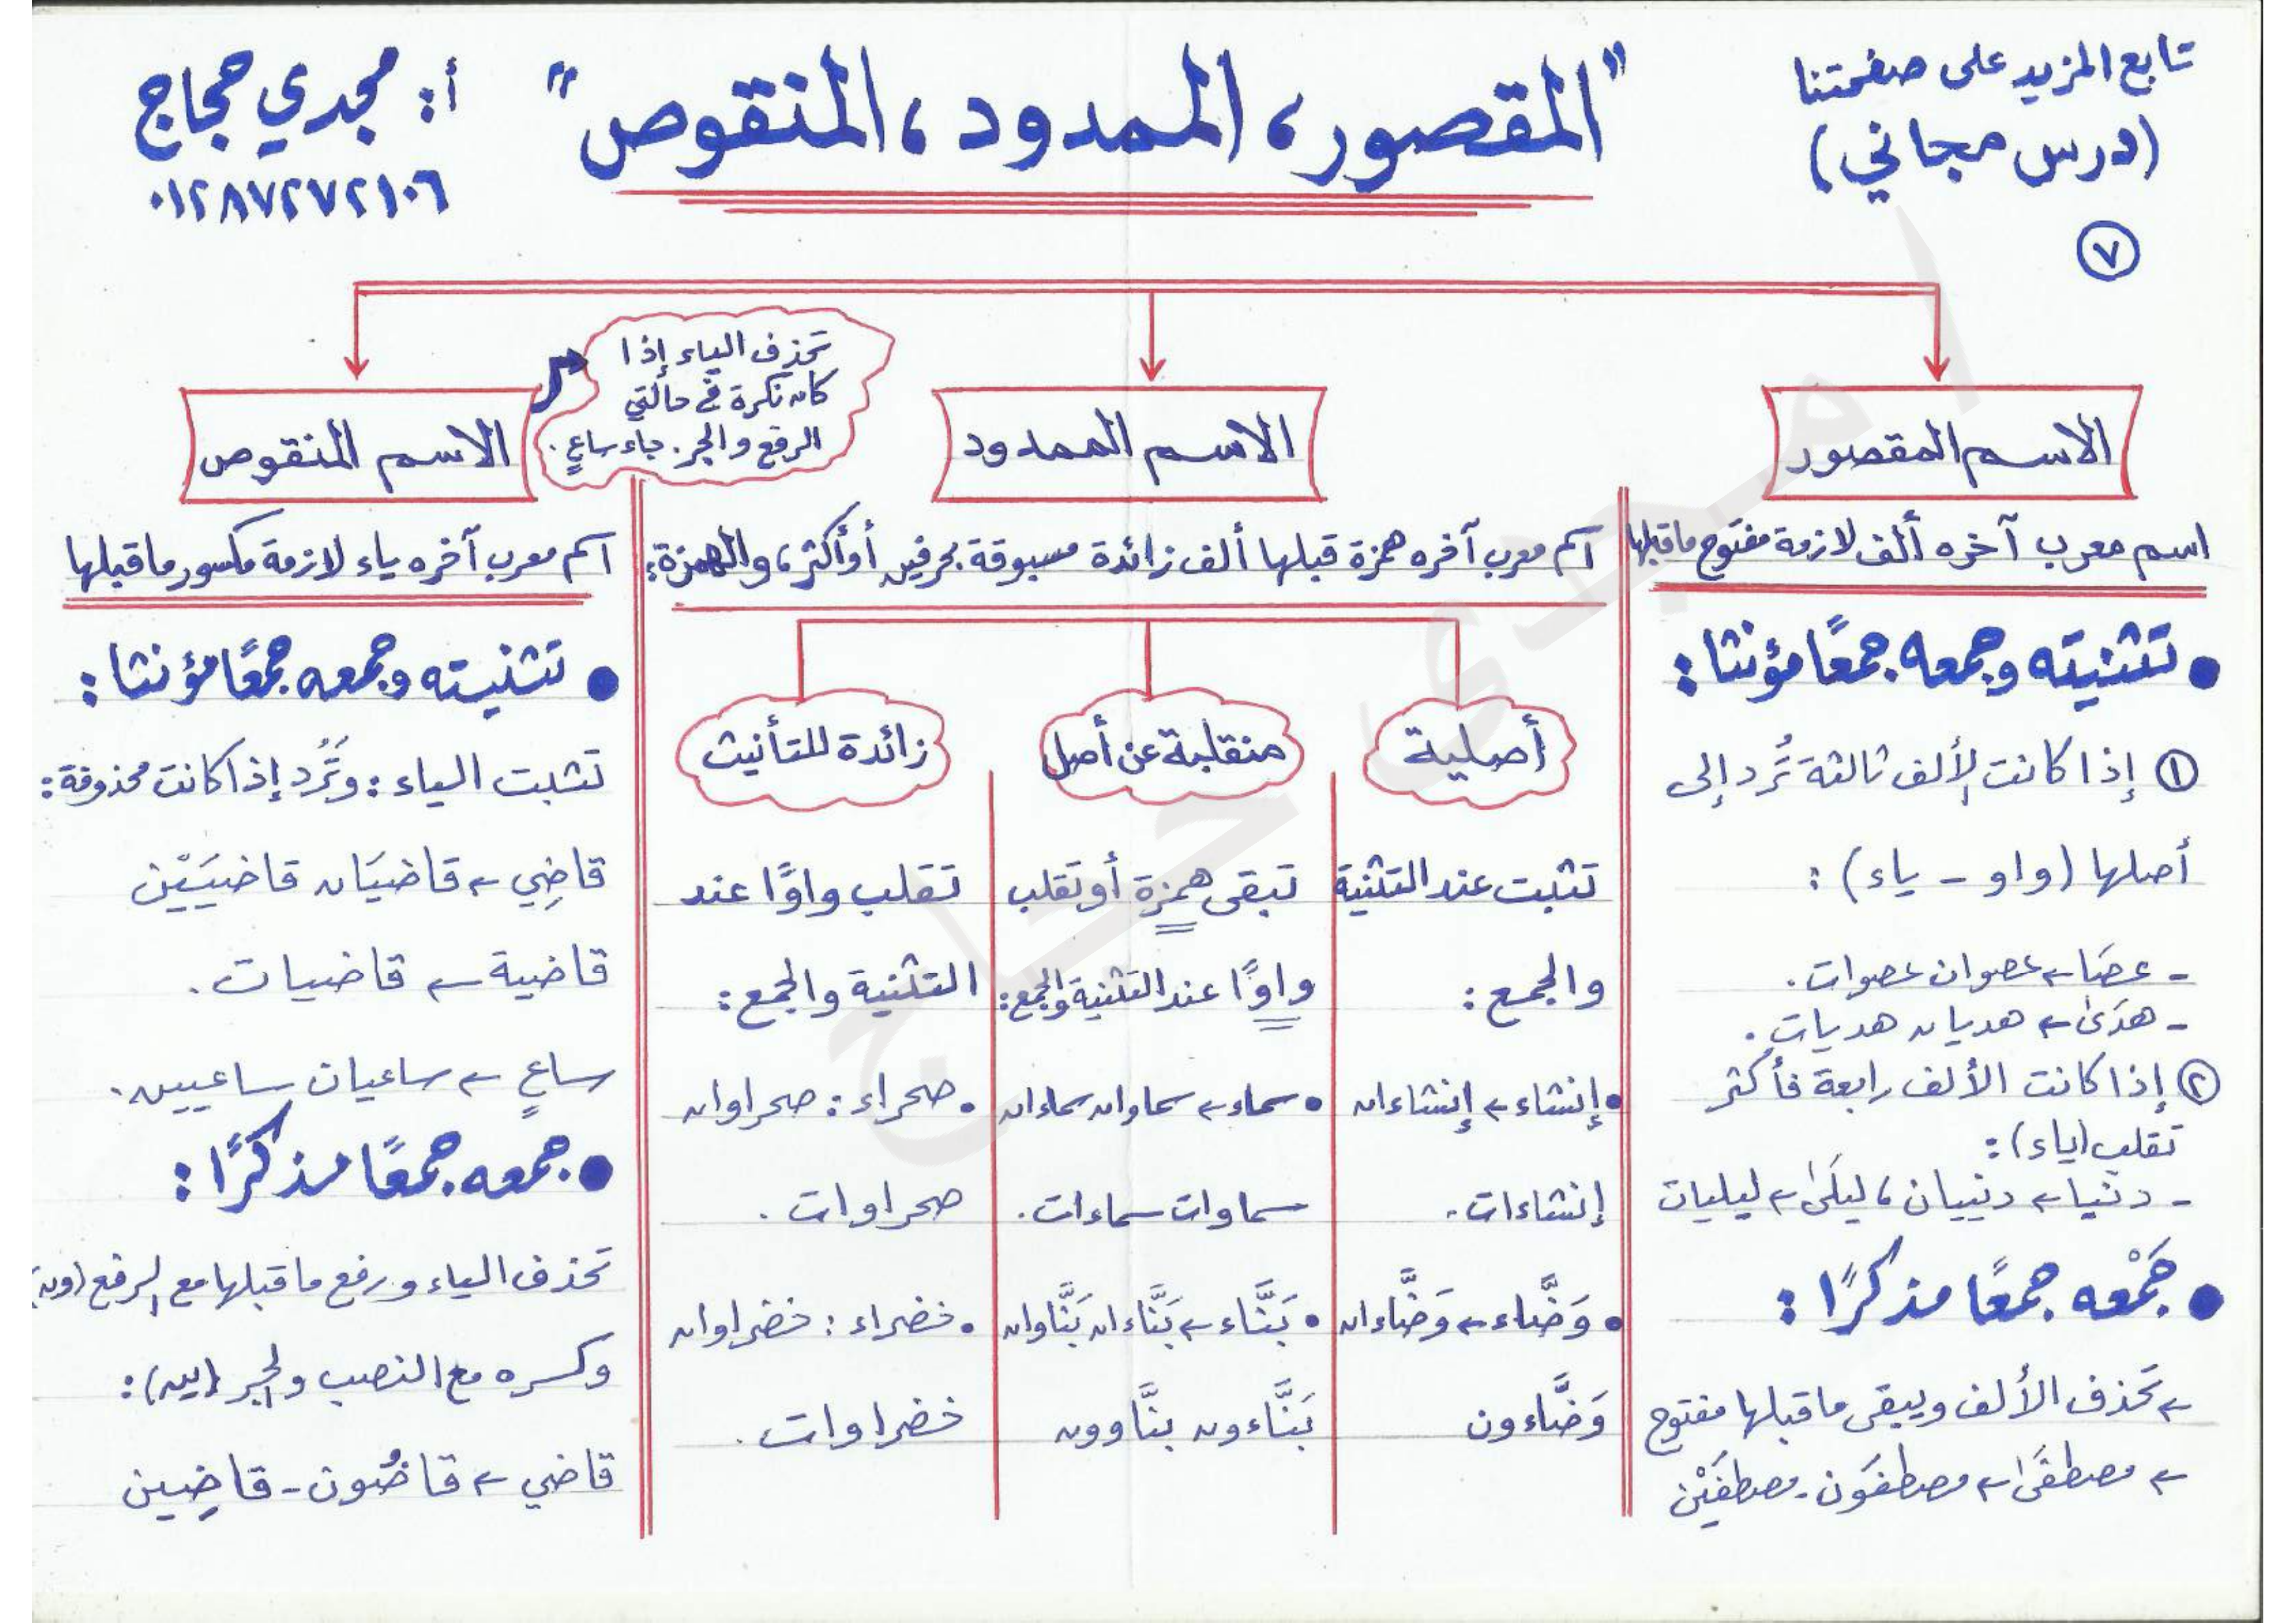 تابع المزيد على صفحتنا
(درس مجاني)
٧
"المقصور، الممدود، المنقوص"
أ: مجدي حجاج
٠١٢٨٧٢٧٢١٠٦
الاسم المقصور
اسم معرب آخره ألف لازمة مفتوح ماقبلها
• تثنيته وجمعه جمعًا مؤنثا:
① إذا كانت الألف ثالثة تُرَد إلى
أصلها (واو - ياء):
- عصَا ← عصوان عصوات.
- هدَىٰ ← هديان هديات.
② إذا كانت الألف رابعة فأكثر
تقلب (ياء):
- دنيا ← دنييان، ليلَىٰ ← ليليات
• جَمْعه جمعًا مذكرًا:
← تحذف الألف ويبقى ماقبلها مفتوح
← مصطفَىٰ ← مصطفَون - مصطفَيْن
الاسم الممدود
اسم معرب آخره همزة قبلها ألف زائدة مسبوقة بحرفين أو أكثر، والهمزة:
أصلية
تثبت عند التثنية
والجمع:
• إنشاء ← إنشاءان
إنشاءات.
• وَضَّاء ← وَضَّاءان
وَضَّاءون
منقلبة عن أصل
تبقى همزة أو تقلب
واوًا عند التثنية والجمع:
• سماء ← سماوان سماءان
سماوات سماءات.
• بَنَّاء ← بَنَّاءان بَنَّاوان
بَنَّاءون بنَّاوون
زائدة للتأنيث
تقلب واوًا عند
التثنية والجمع:
• صحراء: صحراوان
صحراوات.
• خضراء: خضراوان
خضراوات.
الاسم المنقوص
تحذف الياء إذا
كان نكرة في حالتي
الرفع والجر. جاء ساعٍ.
اسم معرب آخره ياء لازمة مكسور ماقبلها
• تثنيته وجمعه جمعًا مؤنثا:
تثبت الياء: وتُرَد إذا كانت محذوفة:
قاضِي ← قاضيَان قاضيَيْن
قاضية ← قاضيات.
ساعٍ ← ساعيان ساعيين.
• جمعه جمعًا مذكرًا:
تحذف الياء ورفع ماقبلها مع الرفع (ون)
وكسره مع النصب والجر (ين):
قاضي ← قاضُون - قاضِين